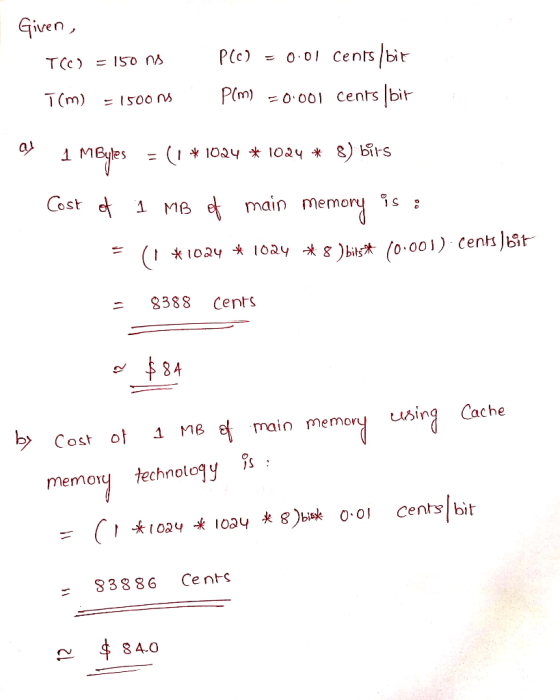 Given,
T(c) = 150 ns P(c) = 0.01 cents/bit
T(m) = 1500 ns P(m) = 0.001 cents/bit
a) 1 MBytes = (1 * 1024 * 1024 * 8) bits
Cost of 1 MB of main memory is :
= (1 * 1024 * 1024 * 8) bits* (0.001) cents/bit
= 8388 Cents
≃ $84
b) Cost of 1 MB of main memory using Cache
memory technology is :
= (1 * 1024 * 1024 * 8) bits* 0.01 cents/bit
= 83886 Cents
≃ $ 84.0